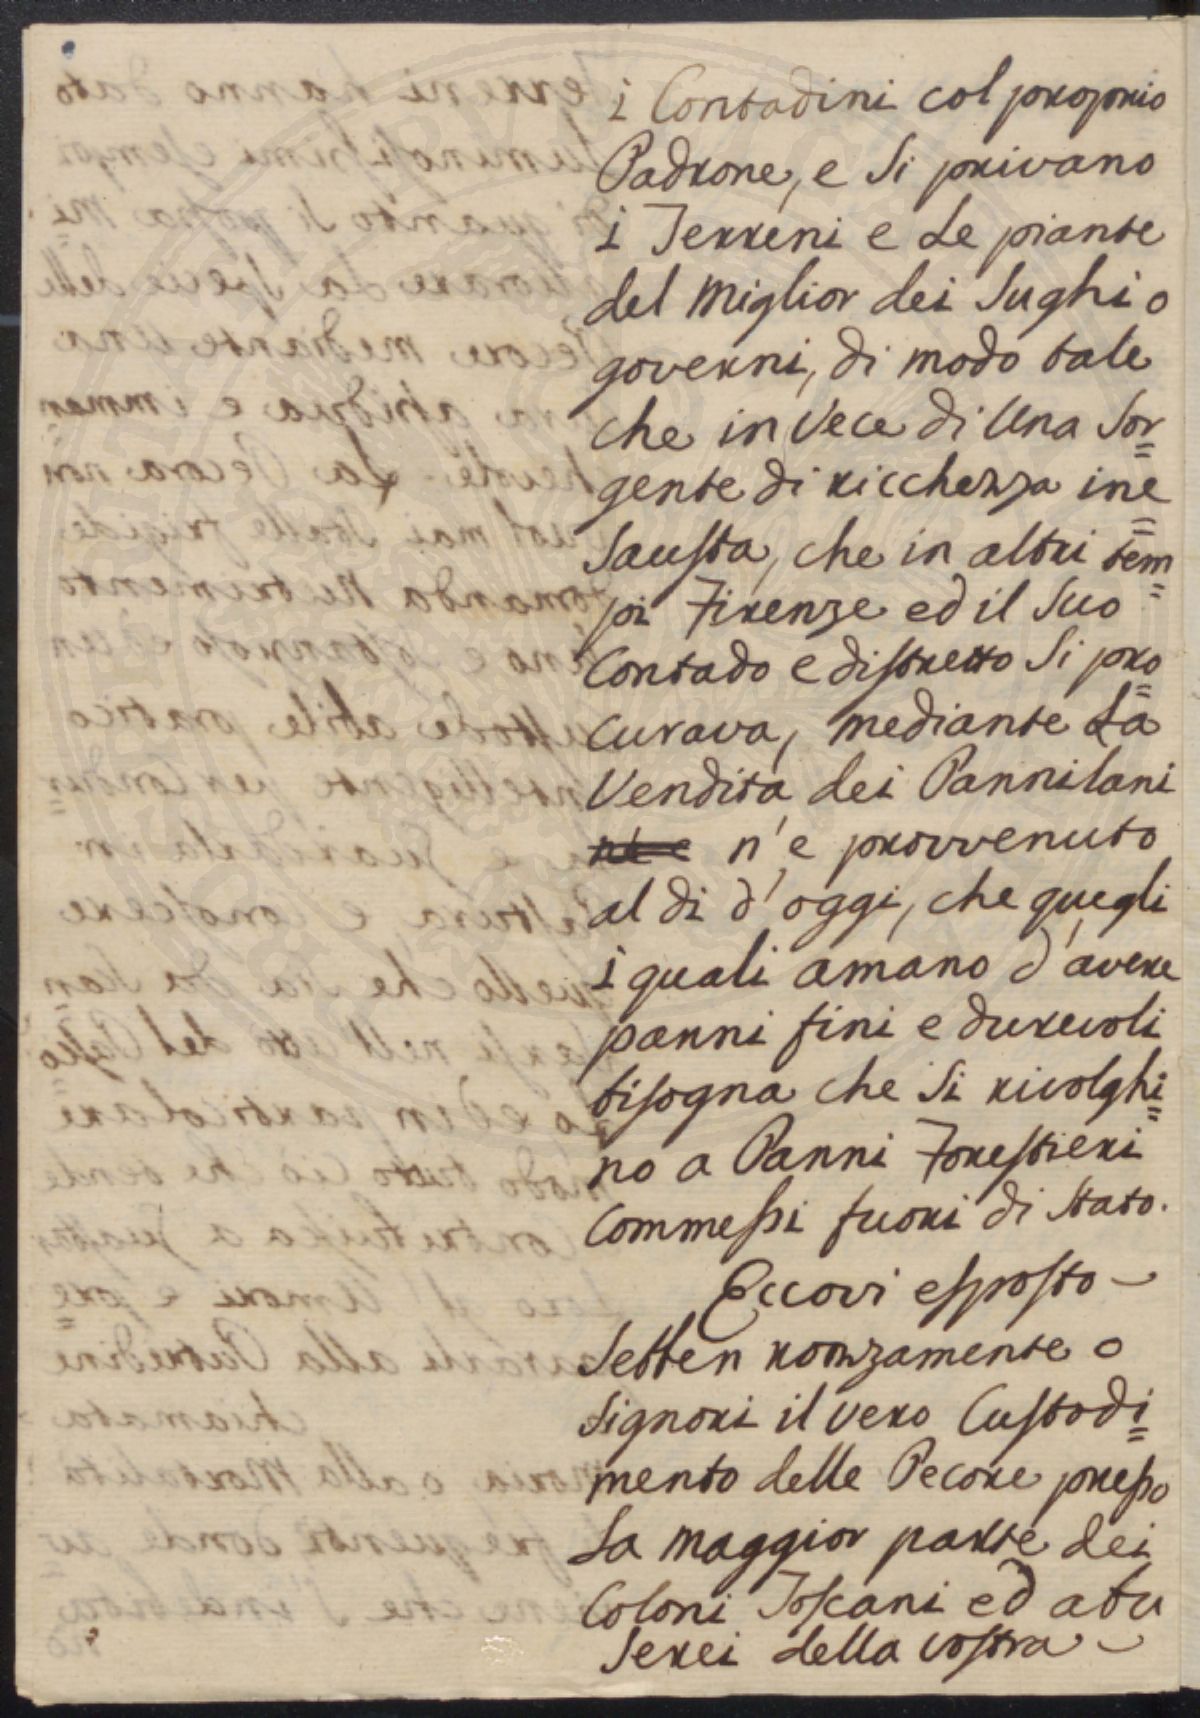 i Contadini col proprio
Padrone, e Si privano
i Terreni e Le piante
del Miglior dei Sughi o
governi, di modo tale
che in Vece di Una Sor=
gente di ricchezza ine=
Sausta, che in altri tem=
pi Firenze ed il Suo
Contado e distretto Si pro=
curava, mediante La
Vendita dei Pannilani
n'e provvenuto
al di d'oggi, che quegli
i quali amano d'avere
panni fini e durevoli
bisogna che Si rivolghi=
no a Panni Forestieri
Commessi fuori di Stato.
Eccovi esposto
Sebben rozzamente o
Signori il vero Custodi=
mento delle Pecore presso
La maggior parte dei
Coloni Toscani ed abu
Serei della vostra